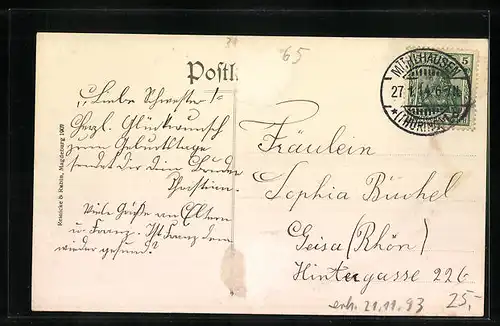 31
65
Postk
MÜHLHAUSEN
27.1.14.6-7N.
* (THÜRINGEN)
5
„Liebe Schwester!"
Herzl. Glückwunsch
zum Geburtstage
sendet dir dein Bruder
Christian.
Viele Grüße an Eltern
u. Franz. Ist Franz denn
wieder gesund?
Fräulein
Sophia Büchel
Geisa (Rhön)
Hintergasse 226
erh. 21.11.93
25,-
Reinicke & Rubin, Magdeburg 1909